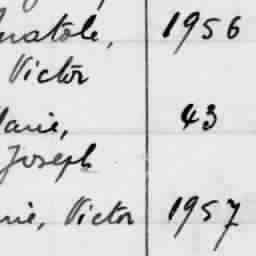 Anatole, 1956
Victor
Marie, 43
Joseph
Victor 1957